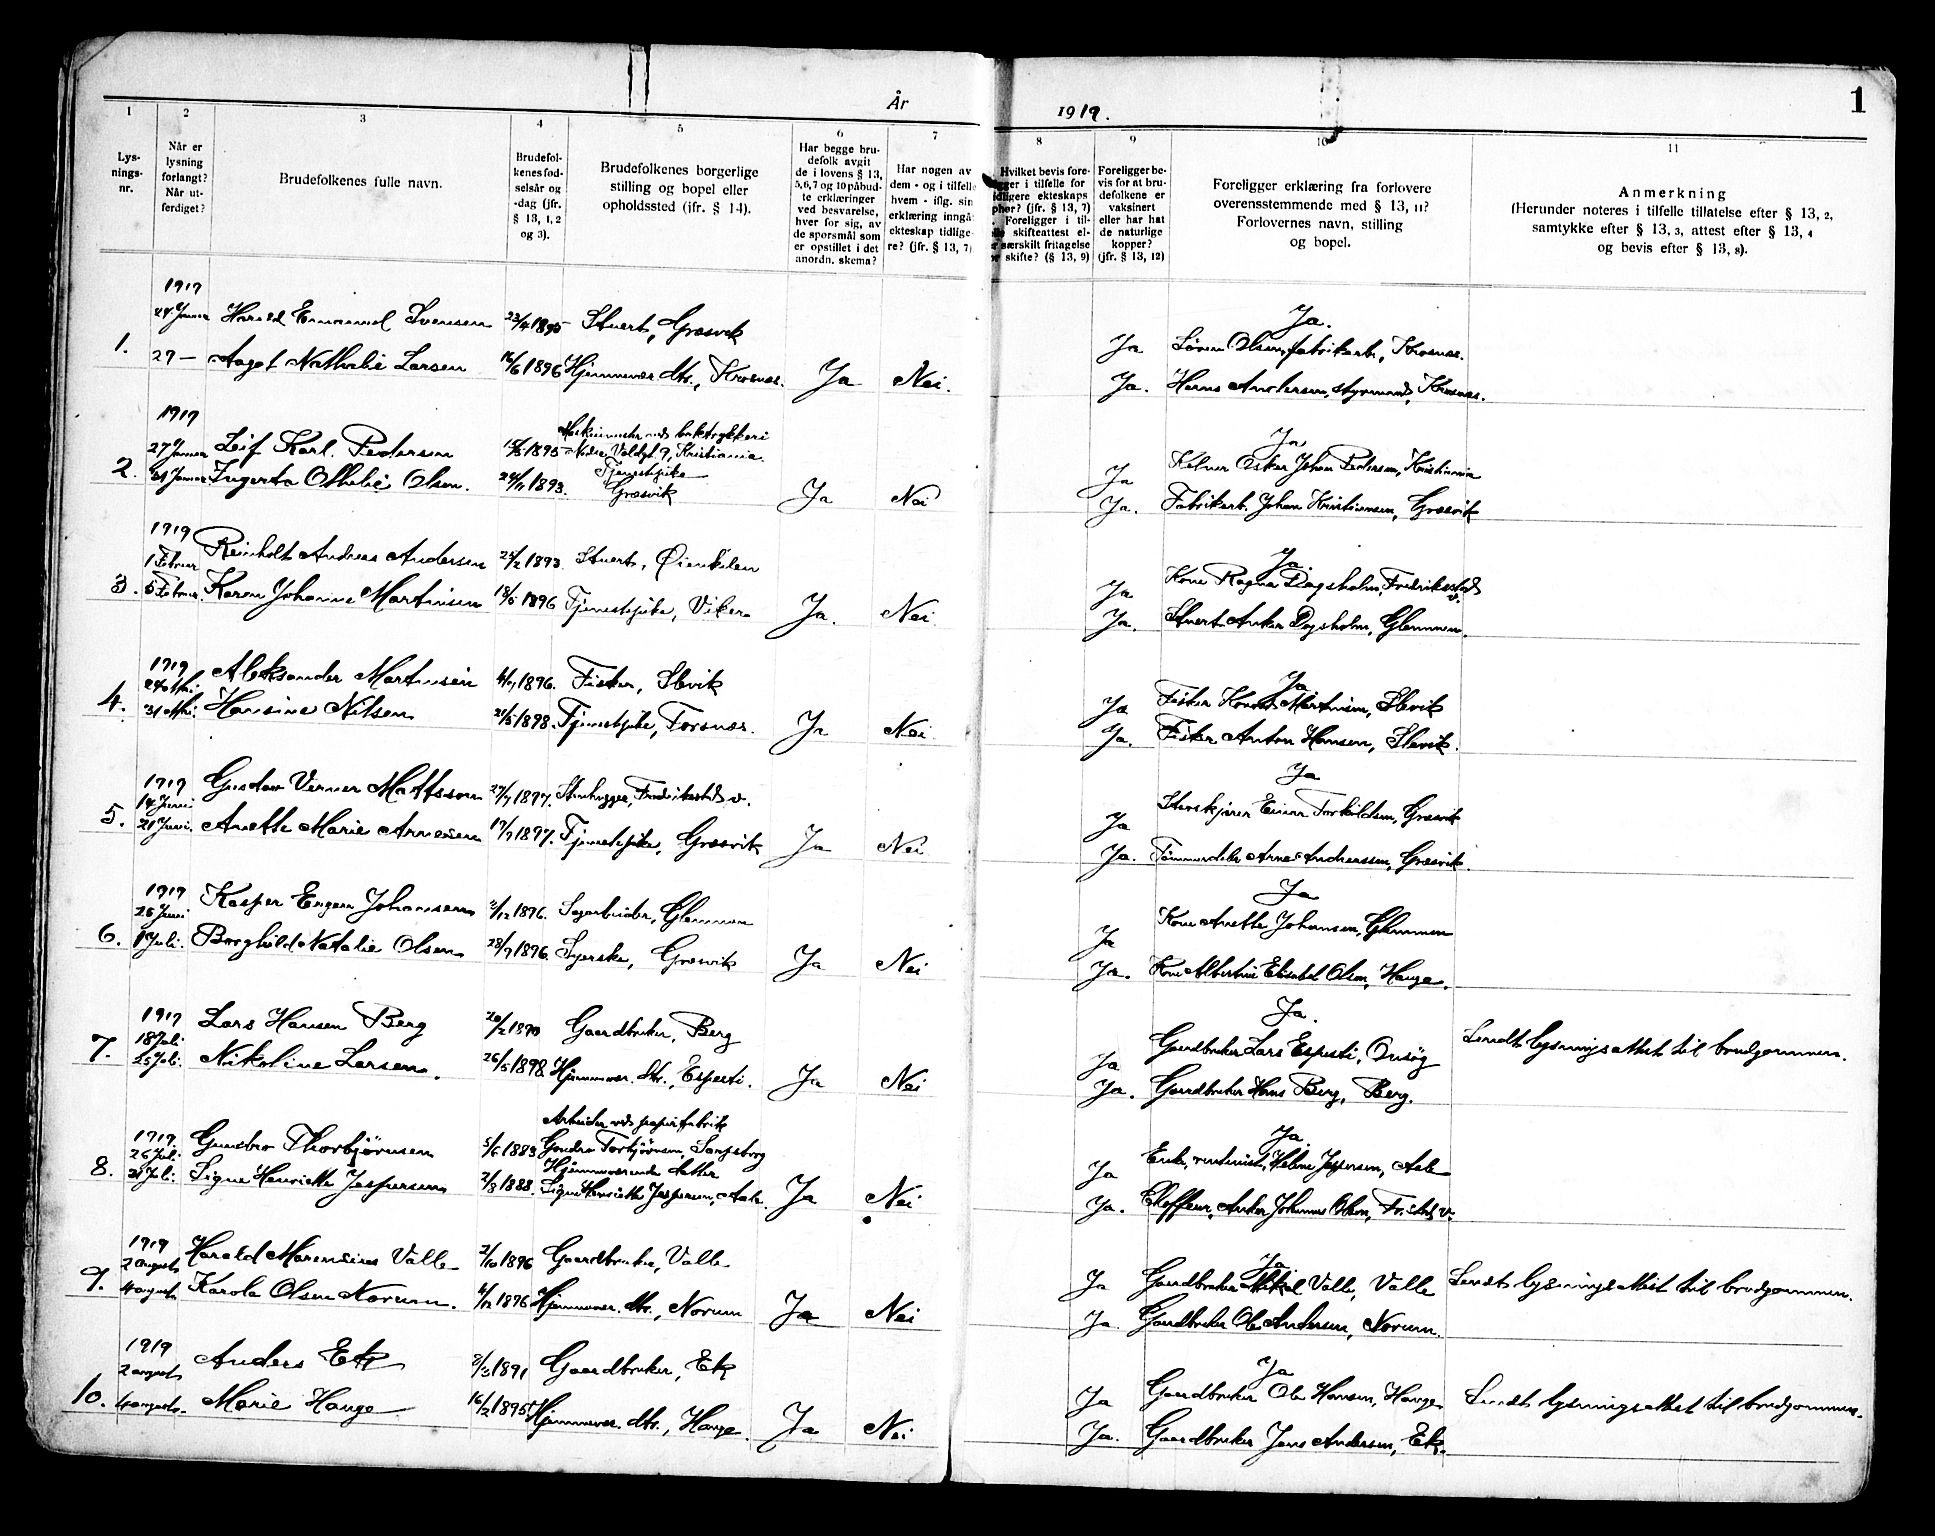 År 1919.
1
1 2 3 4 5 6 7 8 9 10 11
Lys-
nings-
nr.
Når er
lysning
forlangt?
Når ut-
ferdiget?
Brudefolkenes fulle navn.
Brudefol-
kenes fød-
selsår og
-dag (jfr.
§ 13, 1, 2
og 3).
Brudefolkenes borgerlige
stilling og bopel eller
opholdssted (jfr. § 14).
Har begge bru-
defolk avgit
de i lovens § 13,
5, 6, 7 og 10 påbud-
te erklæringer
ved besvarelse,
hver for sig, av
de spørsmål som
er opstillet i det
anordn. skema?
Har nogen av
dem - og i tilfelle
hvem - iflg. sin
erklæring inngå
ekteskap tidlige-
re? (jfr. § 13, 7)
Hvilket bevis fore-
ger i tilfelle for
idligere ekteskaps
phør? (jfr. § 13, 7)
Foreligger i til-
skifteattest el-
særskilt fritagelse
or skifte? (§ 13, 9)
Foreligger be-
vis for at bru-
defolkene er
vaksinert
eller har hat
de naturlige
kopper?
(jfr. § 13, 12)
Foreligger erklæring fra forlovere
overensstemmende med § 13, 11?
Forlovernes navn, stilling
og bopel.
Anmerkning
(Herunder noteres i tilfelle tillatelse efter § 13, 2,
samtykke efter § 13, 3, attest efter § 13, 4
og bevis efter § 13, 8).
1919 Ja.
Harald Emanuel Svensen 23/4 1895 Stuert, Græsvik Ja Søren Olsen, fabrikarb., Krosnæs.
1. 29 — Aagot Nathalie Larsen 16/6 1896 Hjemmevær. dtr., Krosnæs. Ja Nei. Ja. Hans Andersen, styrmand, Krosnæs.
1919 Ja
27 Januar Leif Karl Pedersen 1895 Nedre Voldgt 9, Kristiania. Ja Kelner Oskar Johan Pedersen, Kristiania
2. 31 Januar Ingerta Othelie Olsen. 1893. Tjenestepike Græsvik Ja Nei Ja. Fabrikarb. Johan Kristiansen, Græsvik
1919 Ja.
1 Februar Reinholt Andreas Andersen 1893. Stuert, Øienkilen Ja Kone Ragna Dagsholm, Fredrikstad v.
3. 5 Februar. Karen Johanne Martinsen 1896 Tjenestepike, Viker Ja. Nei Ja. Stuert Anker Dagsholm, Glemmen.
1919 Ja
24 Mai. Aleksander Martinsen 1896. Fisker, Slevik Ja Fisker Martinsen, Slevik
4. 31 Mai. Hansine Nilsen 21/5 1898. Tjenestepike, Torsnæs. Ja Nei Ja. Fisker Anton Hansen, Slevik.
1919 Ja
14 Juni Gustav Verner Mattsson 27/7 1897. Stenhugger, Fredrikstad v. Ja Einar Torkildsen, Græsvik
5. 21 Juni. Anethe Marie Arnesen 17/7 1897. Tjenestepike, Græsvik Ja Nei Ja. Arne Andreassen, Græsvik.
1919 Ja
26 Juni Kasper Eugen Johansen 2/12 1896. Sagarbeider, Glemmen Ja Kone Anethe Johansen, Glemmen
6. 1 Juli. Borghild Natalie Olsen 28/7 1896. Syerske, Græsvik Ja Nei Ja. Kone Albertine Elisabet Olsen, Hauge.
1919 Ja.
18 Juli Lars Hansen Berg Gaardbruker, Berg Ja Gaardbruker Lars Espesti, Onsøy Sendt lysningsattest til brudgommen.
7. 25 Juli. Nikoline Larsen. 26/5 1898 Hjemmevær. dtr., Espesti. Ja Nei Ja. Gaardbruker Hans Berg, Berg.
1919 Arbeider ved papirfabrik Ja.
26 Juli. Gundro Thorbjörnsen 5/6 1883 Gundro Torbjörnsen, Sarpsborg Ja Enke, Helene Jespersen, Aale
Hjemmeværende datter
8. 31 Juli. Signe Henriette Jespersen 2/8 1888. Signe Henriette Jespersen, Aale. Ja Nei Ja. Anker Johannes Olsen, Fr.stad v.
1919 Ja.
2 august Harald Marensius Valle 2/10 1896 Gaardbruker, Valle Ja Gaardbruker Mikal Valle, Valle Sendt lysningsattest til brudgommen.
9. 4 august Karola Olsen Norum. 1896 Hjemmevær. dtr., Norum Ja Nei Ja. Gaardbruker Ole Andersen, Norum.
1919 Ja
2 august Anders Ek 1891 Gaardbruker, Ek Ja Gaardbruker Ole Hansen, Hauge Sendt lysningsattest til brudgommen.
10. 4 august. Marie Hauge 16/2 1895 Hjemmevær. dtr., Hauge. Ja Nei Ja. Gaardbruker Jens Andersen, Ek.